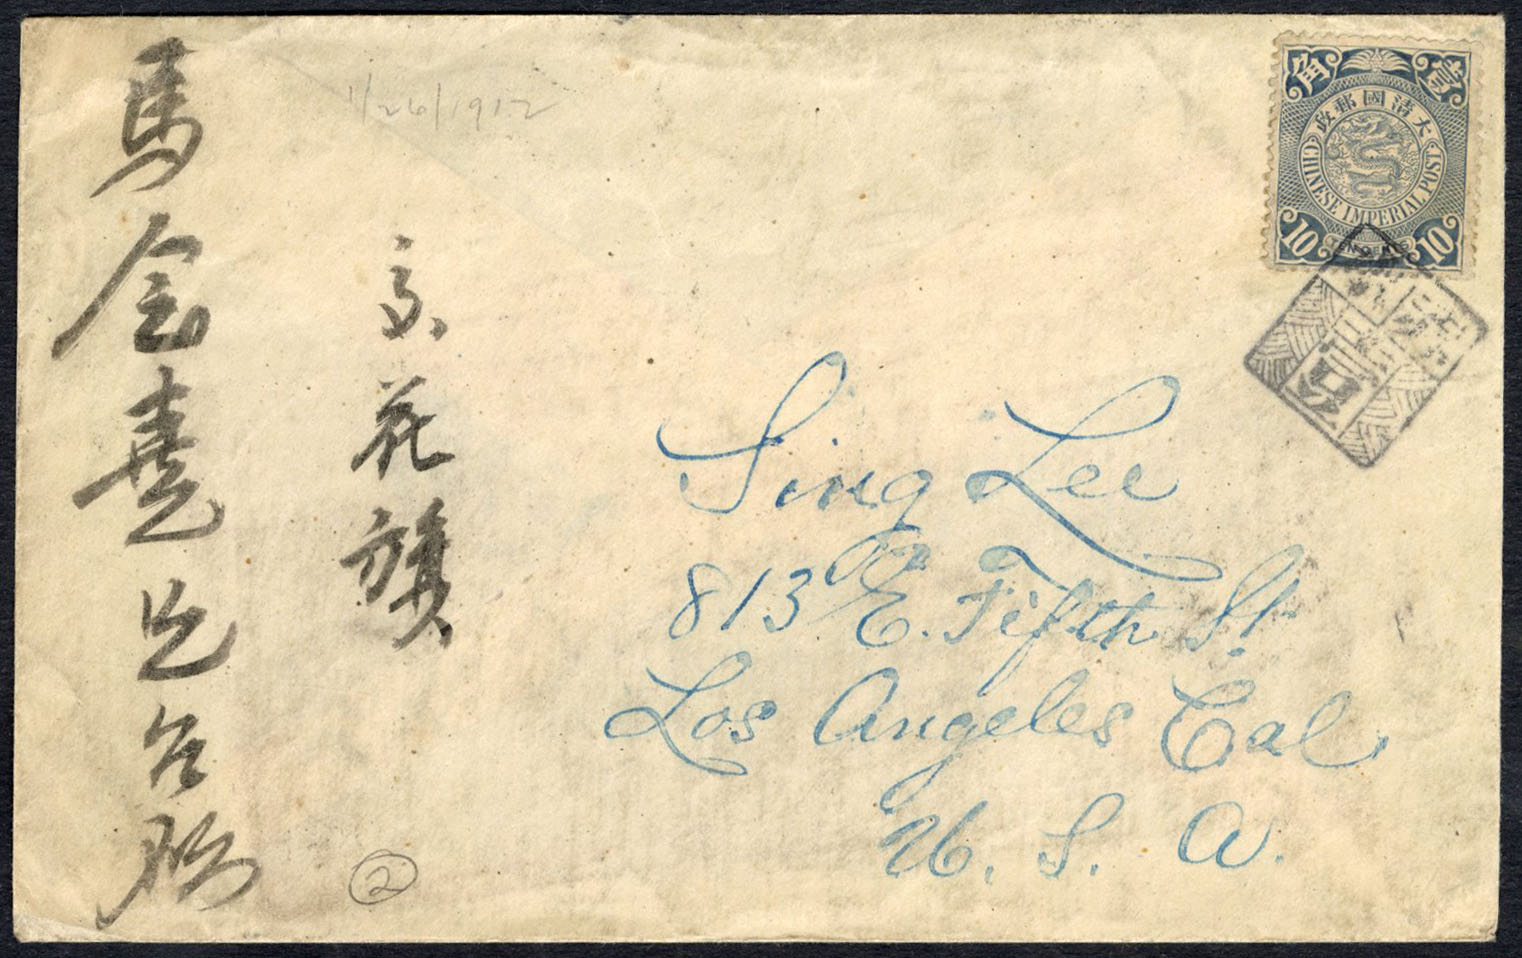 1/26/1912
壹 角
大清國郵政
CHINESE IMPERIAL POST
10 TEN CENTS 10
花旗
馬金喜
Sing Lee
813 E. Fifth St.
Los Angeles Cal
U. S. A.
2